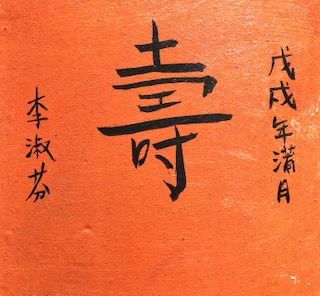 戊戌年蒲月
壽
李淑芬